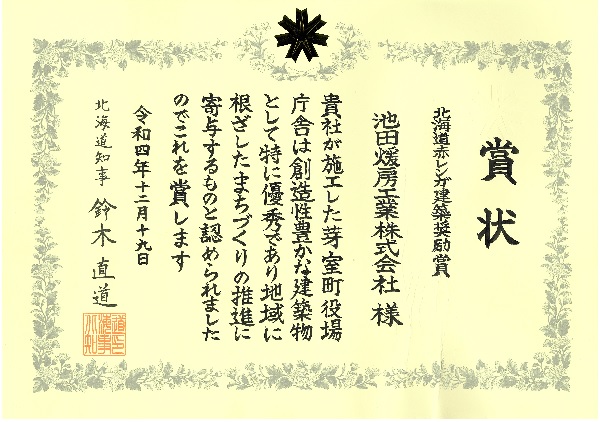 賞状
北海道赤レンガ建築奨励賞
池田煖房工業株式会社 様
貴社が施工した芽室町役場
庁舎は創造性豊かな建築物
として特に優秀であり地域に
根ざしたまちづくりの推進に
寄与するものと認められました
のでこれを賞します
令和四年十二月十九日
北海道知事 鈴木直道